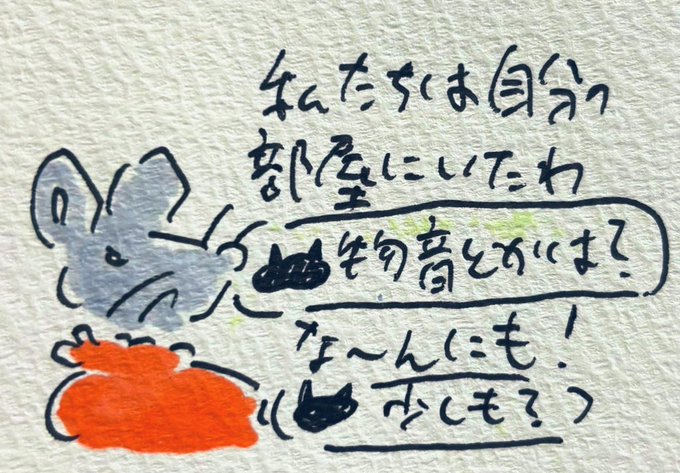 私たちは自分の
部屋にいたわ
物音とかは?
な〜んにも!
少しも?